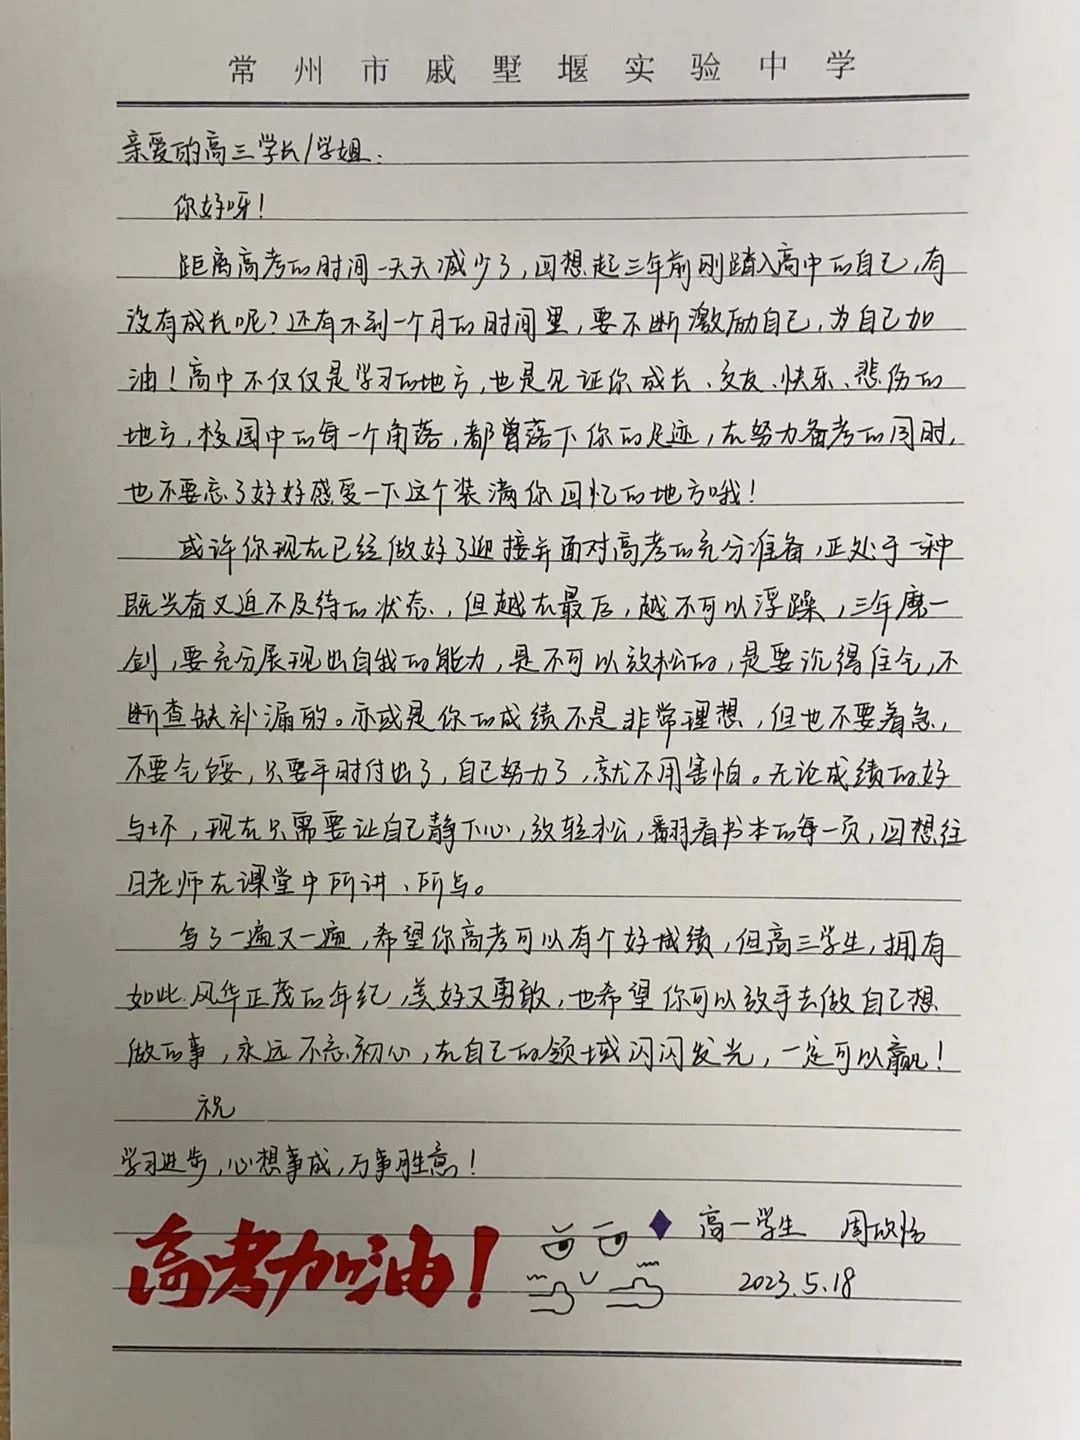 常州市戚墅堰实验中学
亲爱的高三学长/学姐:
你好呀!
距离高考的时间一天天减少了,回想起三年前刚踏入高中的自己,有
没有成长呢?还有不到一个月的时间里,要不断激励自己,为自己加
油!高中不仅仅是学习的地方,也是见证你成长、交友、快乐、悲伤的
地方,校园中的每一个角落,都曾落下你的足迹,在努力备考的同时,
也不要忘了好好感受一下这个装满你回忆的地方哦!
或许你现在已经做好了迎接并面对高考的充分准备,正处于一种
既兴奋又迫不及待的状态,但越在最后,越不可以浮躁,三年磨一
剑,要充分展现出自我的能力,是不可以放松的,是要沉得住气,不
断查缺补漏的。亦或是你的成绩不是非常理想,但也不要着急,
不要气馁,只要平时付出了,自己努力了,就不用害怕。无论成绩的好
与坏,现在只需要让自己静下心,放轻松,翻看书本的每一页,回想往
日老师在课堂中所讲、所写。
写了一遍又一遍,希望你高考可以有个好成绩,但高三学生,拥有
如此风华正茂的年纪,美好又勇敢,也希望你可以放手去做自己想
做的事,永远不忘初心,在自己的领域闪闪发光,一定可以赢!
祝
学习进步,心想事成,万事胜意!
高考加油!
高一学生 周欣怡
2023.5.18